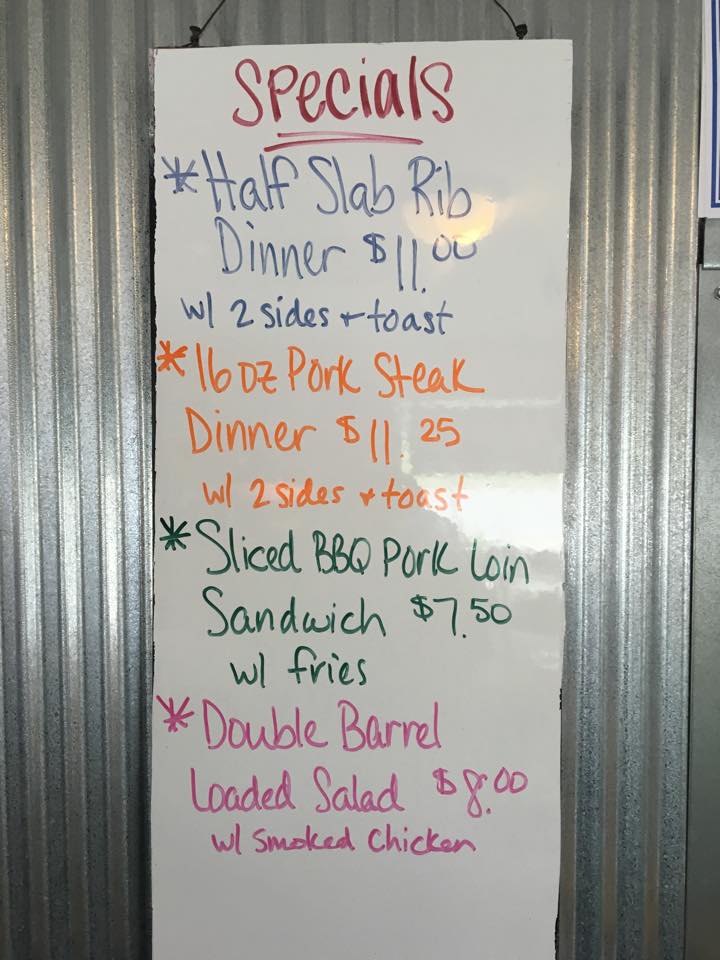 Specials
*Half Slab Rib
Dinner $11.00
w/ 2 sides + toast
*16 oz Pork Steak
Dinner $11.25
w/ 2 sides + toast
*Sliced BBQ Pork Loin
Sandwich $7.50
w/ fries
*Double Barrel
Loaded Salad $8.00
w/ Smoked Chicken